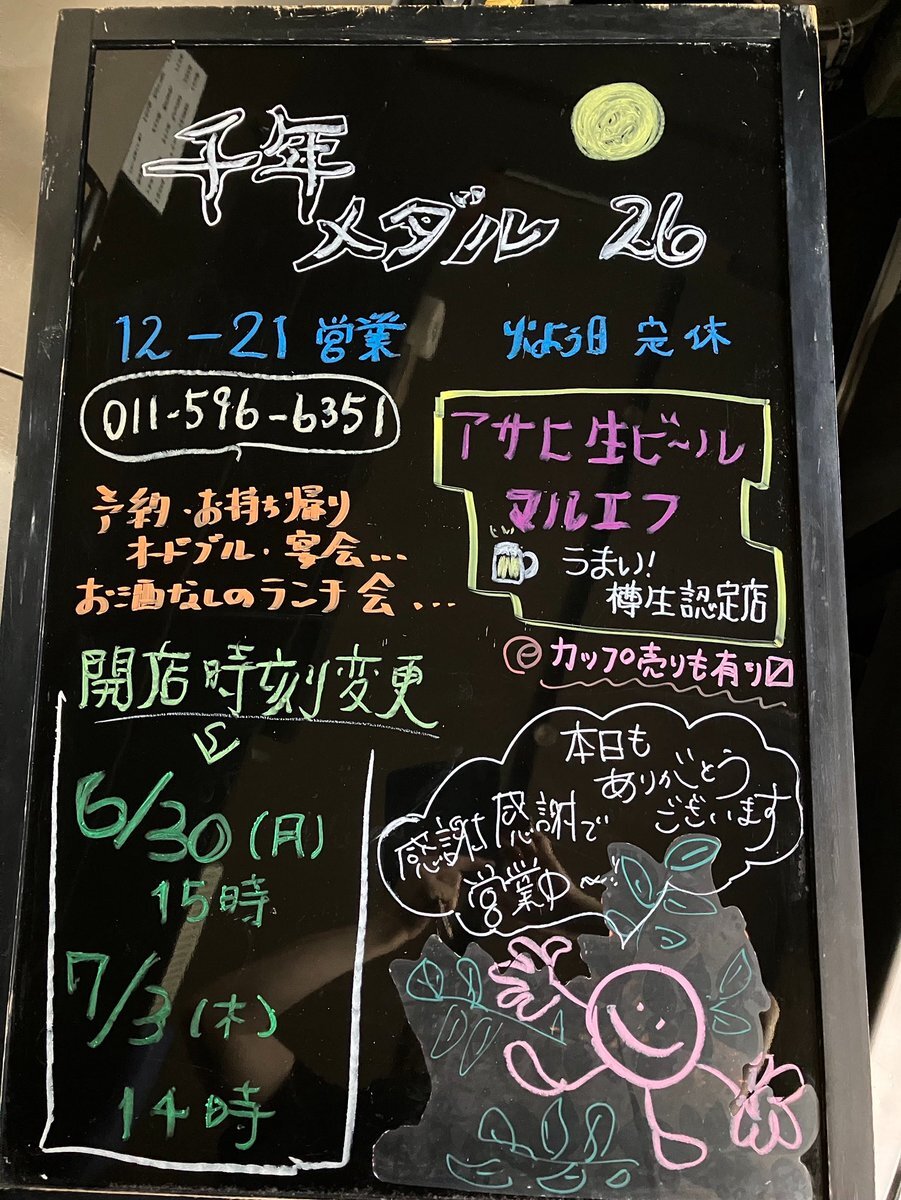 千年
メダル 26
12-21 営業
火よう日 定休
011-596-6351
アサヒ生ビール
マルエフ
うまい!
樽生認定店
予約・お持ち帰り
オードブル・宴会...
お酒なしのランチ会...
カップ売りも有り〼
開店時刻変更
6/30(月)
15時
7/3(木)
14時
本日も
ありがとう
ございます
感謝感謝で
営業中〜